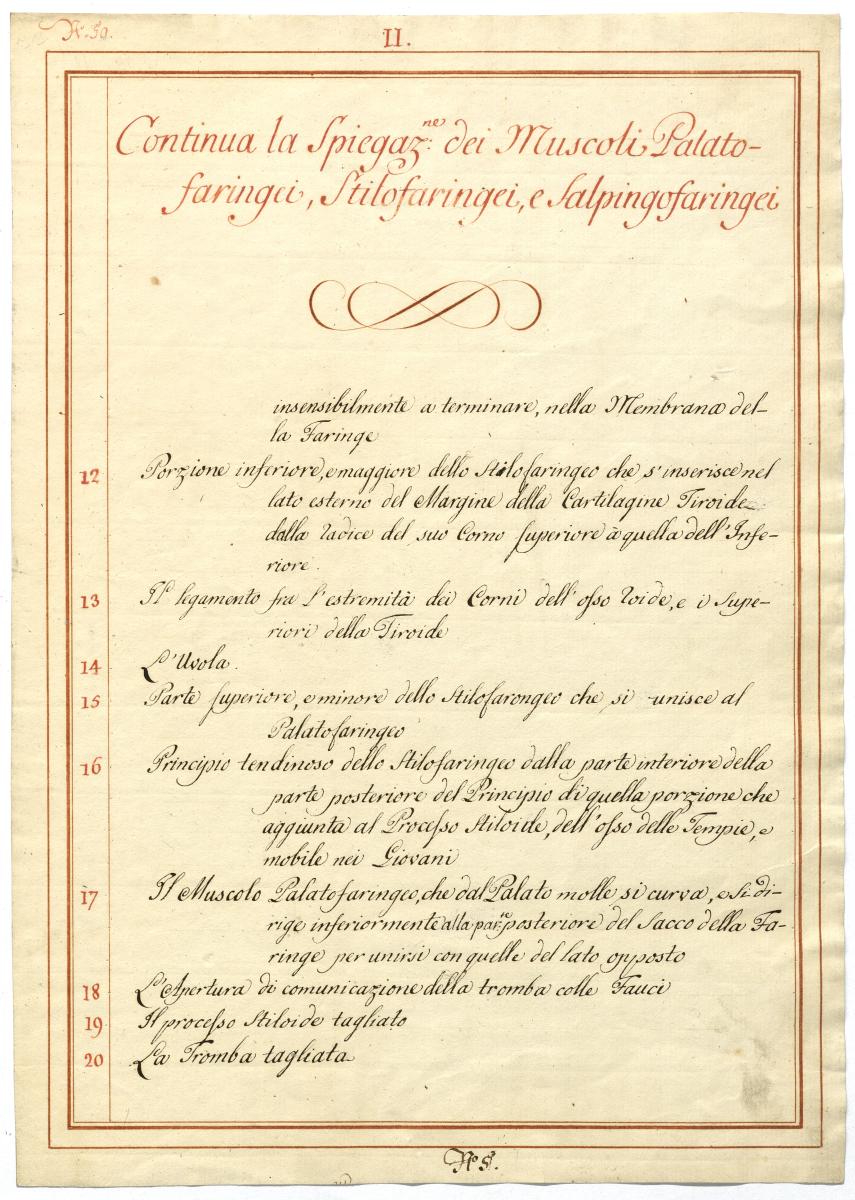 N. 59.
II.
Continua la Spiegaz:ne dei Muscoli Palato-
faringei, Stilofaringei, e Salpingofaringei
insensibilmente a terminare, nella Membrana del-
la Faringe
12 Porzione inferiore, e maggiore dello Stilofaringeo che s'inserisce nel
lato esterno del Margine della Cartilagine Tiroide
dalla radice del suo Corno superiore à quella dell'Infe-
riore.
13 Il legamento fra l'estremità dei Corni dell'osso Ioide, e i Supe-
riori della Tiroide
14 L'Uvola.
15 Parte superiore, e minore dello Stilofarongeo che si unisce al
Palatofaringeo
16 Principio tendinoso dello Stilofaringeo dalla parte interiore della
parte posteriore del Principio di quella porzione che
aggiunta al Processo Stiloide, dell'osso delle Tempie, e
mobile nei Giovani
17 Il Muscolo Palatofaringeo, che dal Palato molle si curva, e Si di-
rige inferiormente alla par:te posteriore del Sacco della Fa-
ringe per unirsi con quelle del lato opposto
18 L'Apertura di comunicazione della tromba colle Fauci
19 Il processo Stiloide tagliato
20 La Tromba tagliata